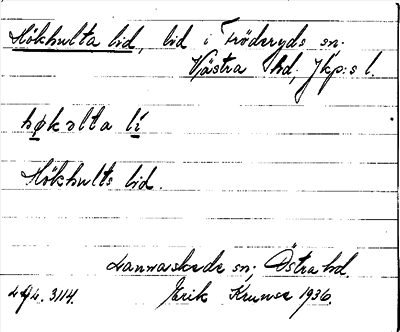 Hökhulta lid, lid i Fröderyds sn.
Västra hd, Jkp:s l.
høkəlta lí
Hökhults lid.
Lannaskede sn; Östra hd.
Erik Krunse 1936.